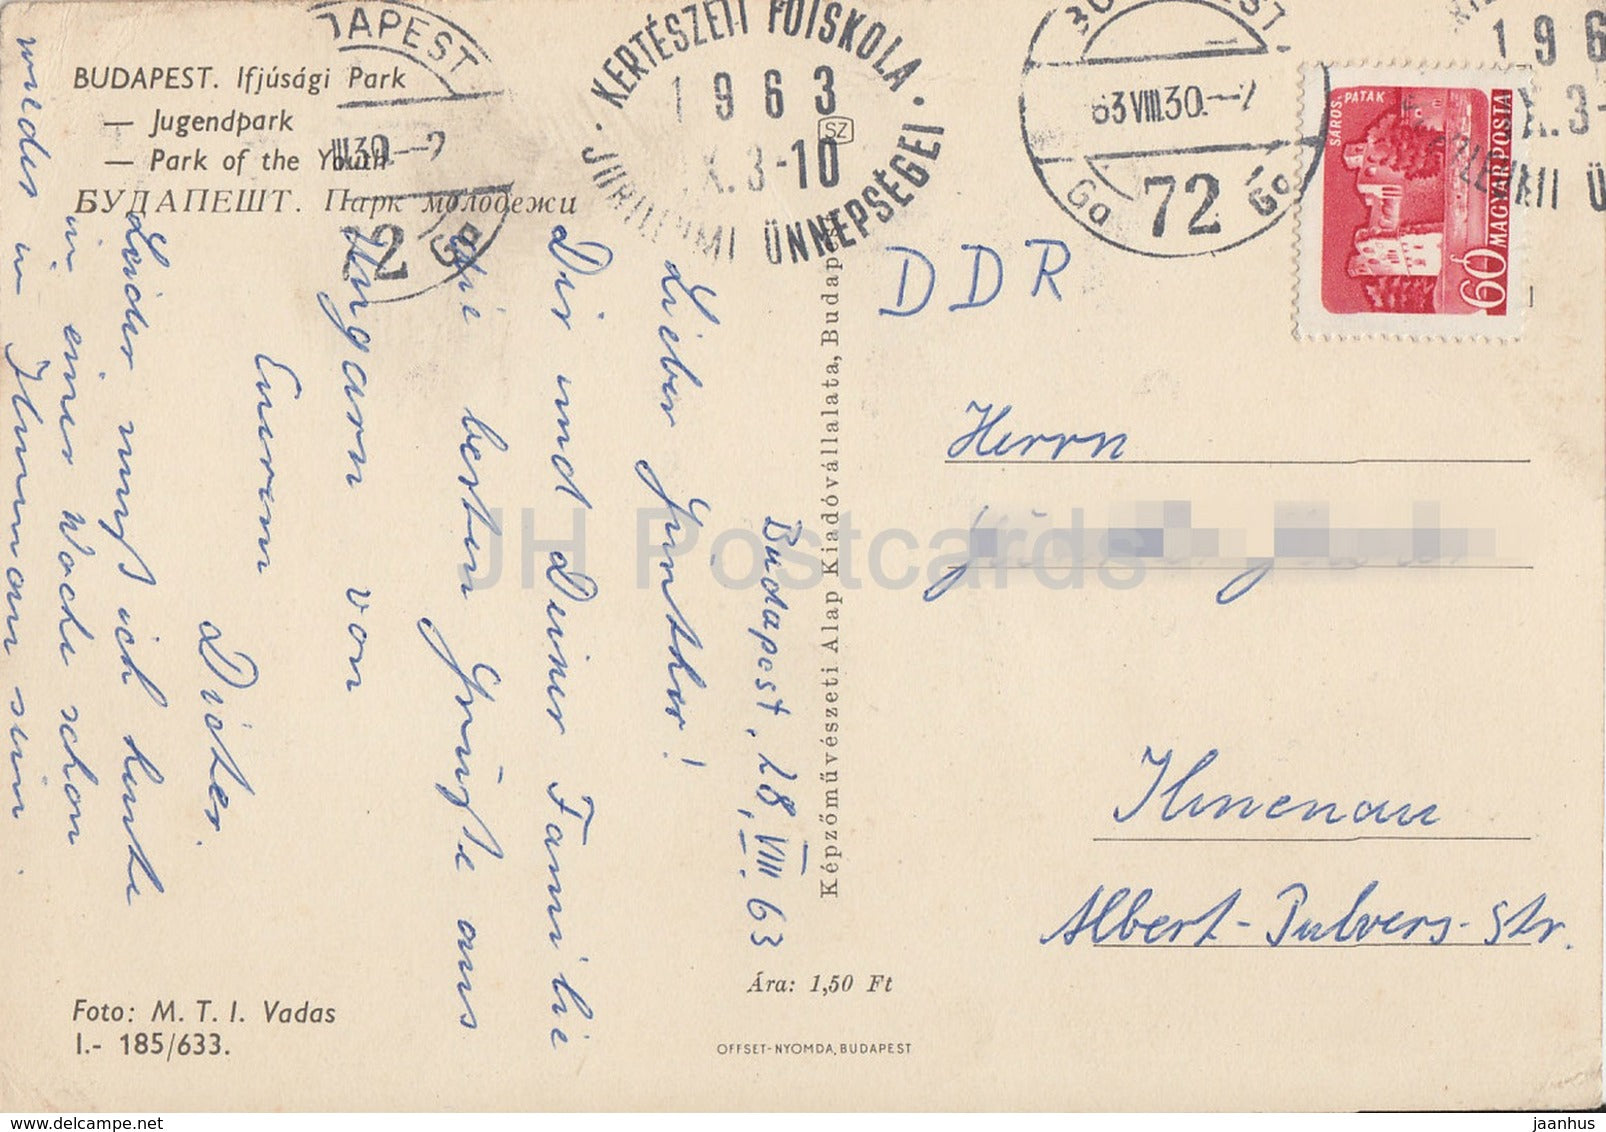 BUDAPEST. Ifjúsági Park
— Jugendpark
— Park of the Youth
БУДАПЕШТ. Парк молодежи
BUDAPEST
VIII.30.—7
72
KERTÉSZETI FŐISKOLA
1963
IX.3-10
JUBILEUMI ÜNNEPSÉGEI
SZ
BUDAPEST
63 VIII.30.—7
72
196
X.3-
SÁROS-PATAK
MAGYAR POSTA
60f
Budapest, 28. VIII. 63
Lieber Günther!
Dir und Deiner Familie
die besten Grüße aus
Ungarn von
Eurem
Dieter.
Leider muß ich heute
in einer Woche schon
wieder in Ilmenau sein.
DDR
Herrn
Ilmenau
Albert-Pulvers-Str.
Képzőművészeti Alap Kiadóvállalata, Budapest
Ára: 1,50 Ft
OFFSET-NYOMDA, BUDAPEST
Foto: M. T. I. Vadas
I.- 185/633.
JH Postcards
www.delcampe.net
jaanhus